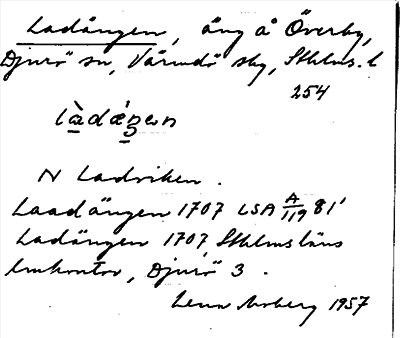 Ladängen, äng å Överby,
Djurö sn, Värmdö skg, Sthlms. l
254
là̱dǽ̱ŋən
N Ladviken.
Laadängen 1707 LSA A/119 81'
Ladängen 1707, Sthlms läns
lmkontor, Djurö 3.
Lena Moberg 1957